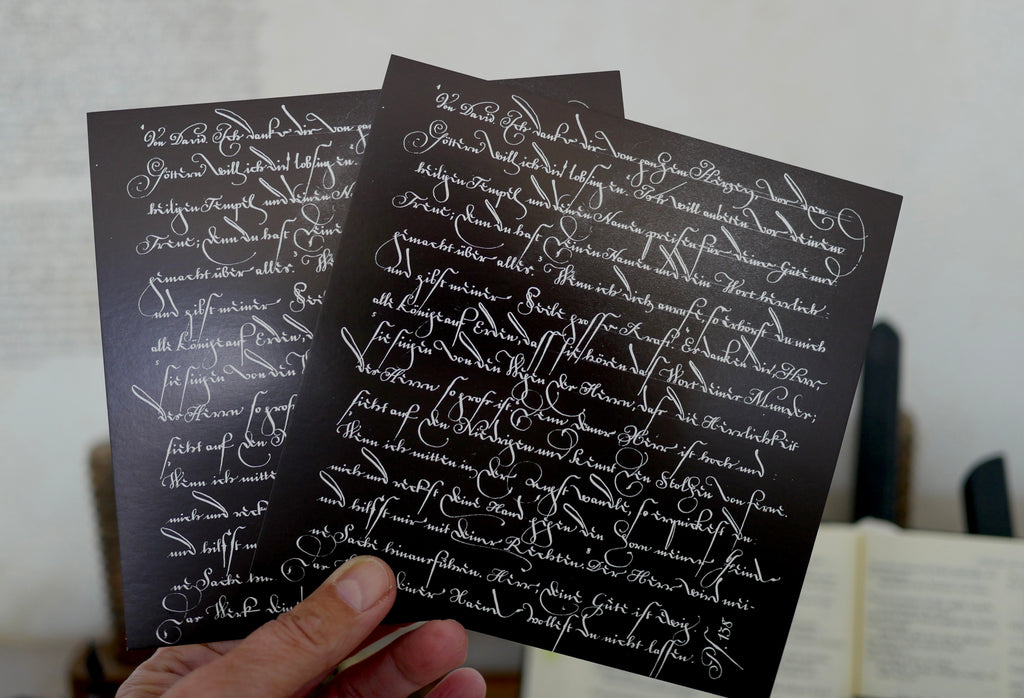 Von David. Ich danke dir von ganzem Herzen, vor den
Göttern will ich dir lobsingen. Ich will anbeten vor deinem
heiligen Tempel und deinen Namen preisen für deine Güte und
Treue; denn du hast deinen Namen und dein Wort herrlich
gemacht über alles. Wenn ich dich anrufe, so erhörst du mich
und gibst meiner Seele grosse Kraft. Es danken dir, Herr
alle Könige auf Erden, dass sie hören das Wort deines Mundes;
sie singen von den Wegen des Herrn, dass die Herrlichkeit
des Herrn so gross ist. Denn der Herr ist hoch und
sieht auf den Niedrigen und kennt den Stolzen von ferne.
Wenn ich mitten in der Angst wandle, so erquickest du
mich und reckst deine Hand gegen den Zorn meiner Feinde
und hilfst mir mit deiner Rechten. Der Herr wird mei-
ne Sache hinausführen. Herr, deine Güte ist ewig.
Das deiner Hände wollest du nicht lassen. Ps 138
Von David. Ich danke dir von
Göttern will ich dir lobsingen.
heiligen Tempel und deinen
Treue; denn du hast deine
gemacht über alles.
und gibst meiner
alle Könige auf Erden,
sie singen von den
des Herrn so gross
sieht auf den
Wenn ich mitte
mich und reck
und hilfst m
ne Sache
Das Werk dein